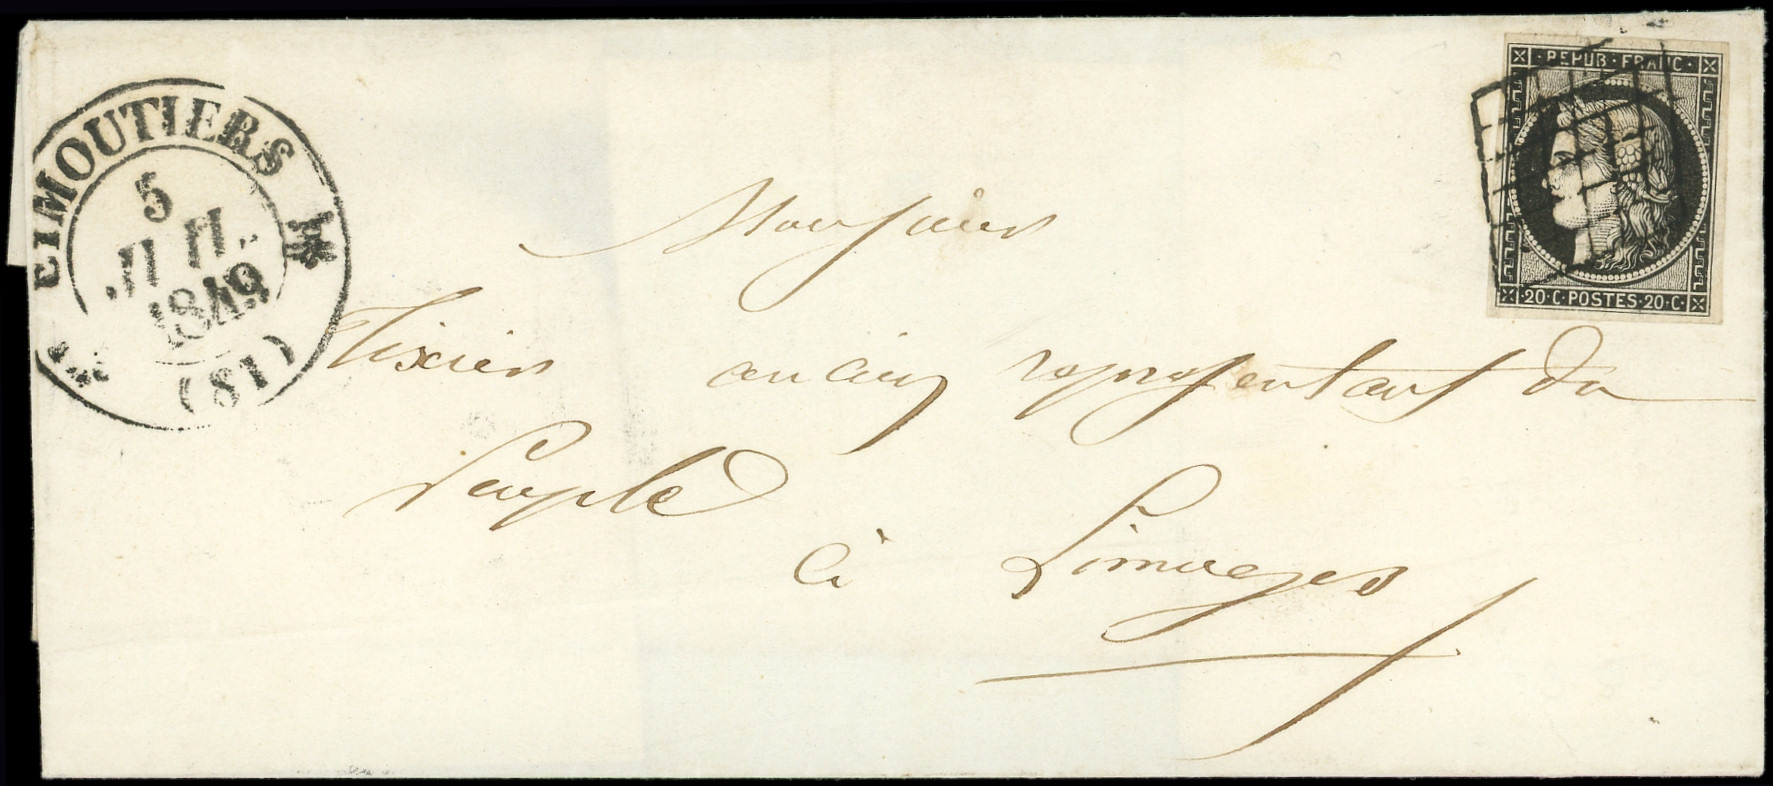 EIMOUTIERS
5
JUIL.
1849
(81)
REPUB · FRANC ·
· 20 · C · POSTES · 20 · C ·
Monsieur
Tixier ancien représentant du
Peuple
à Limoges